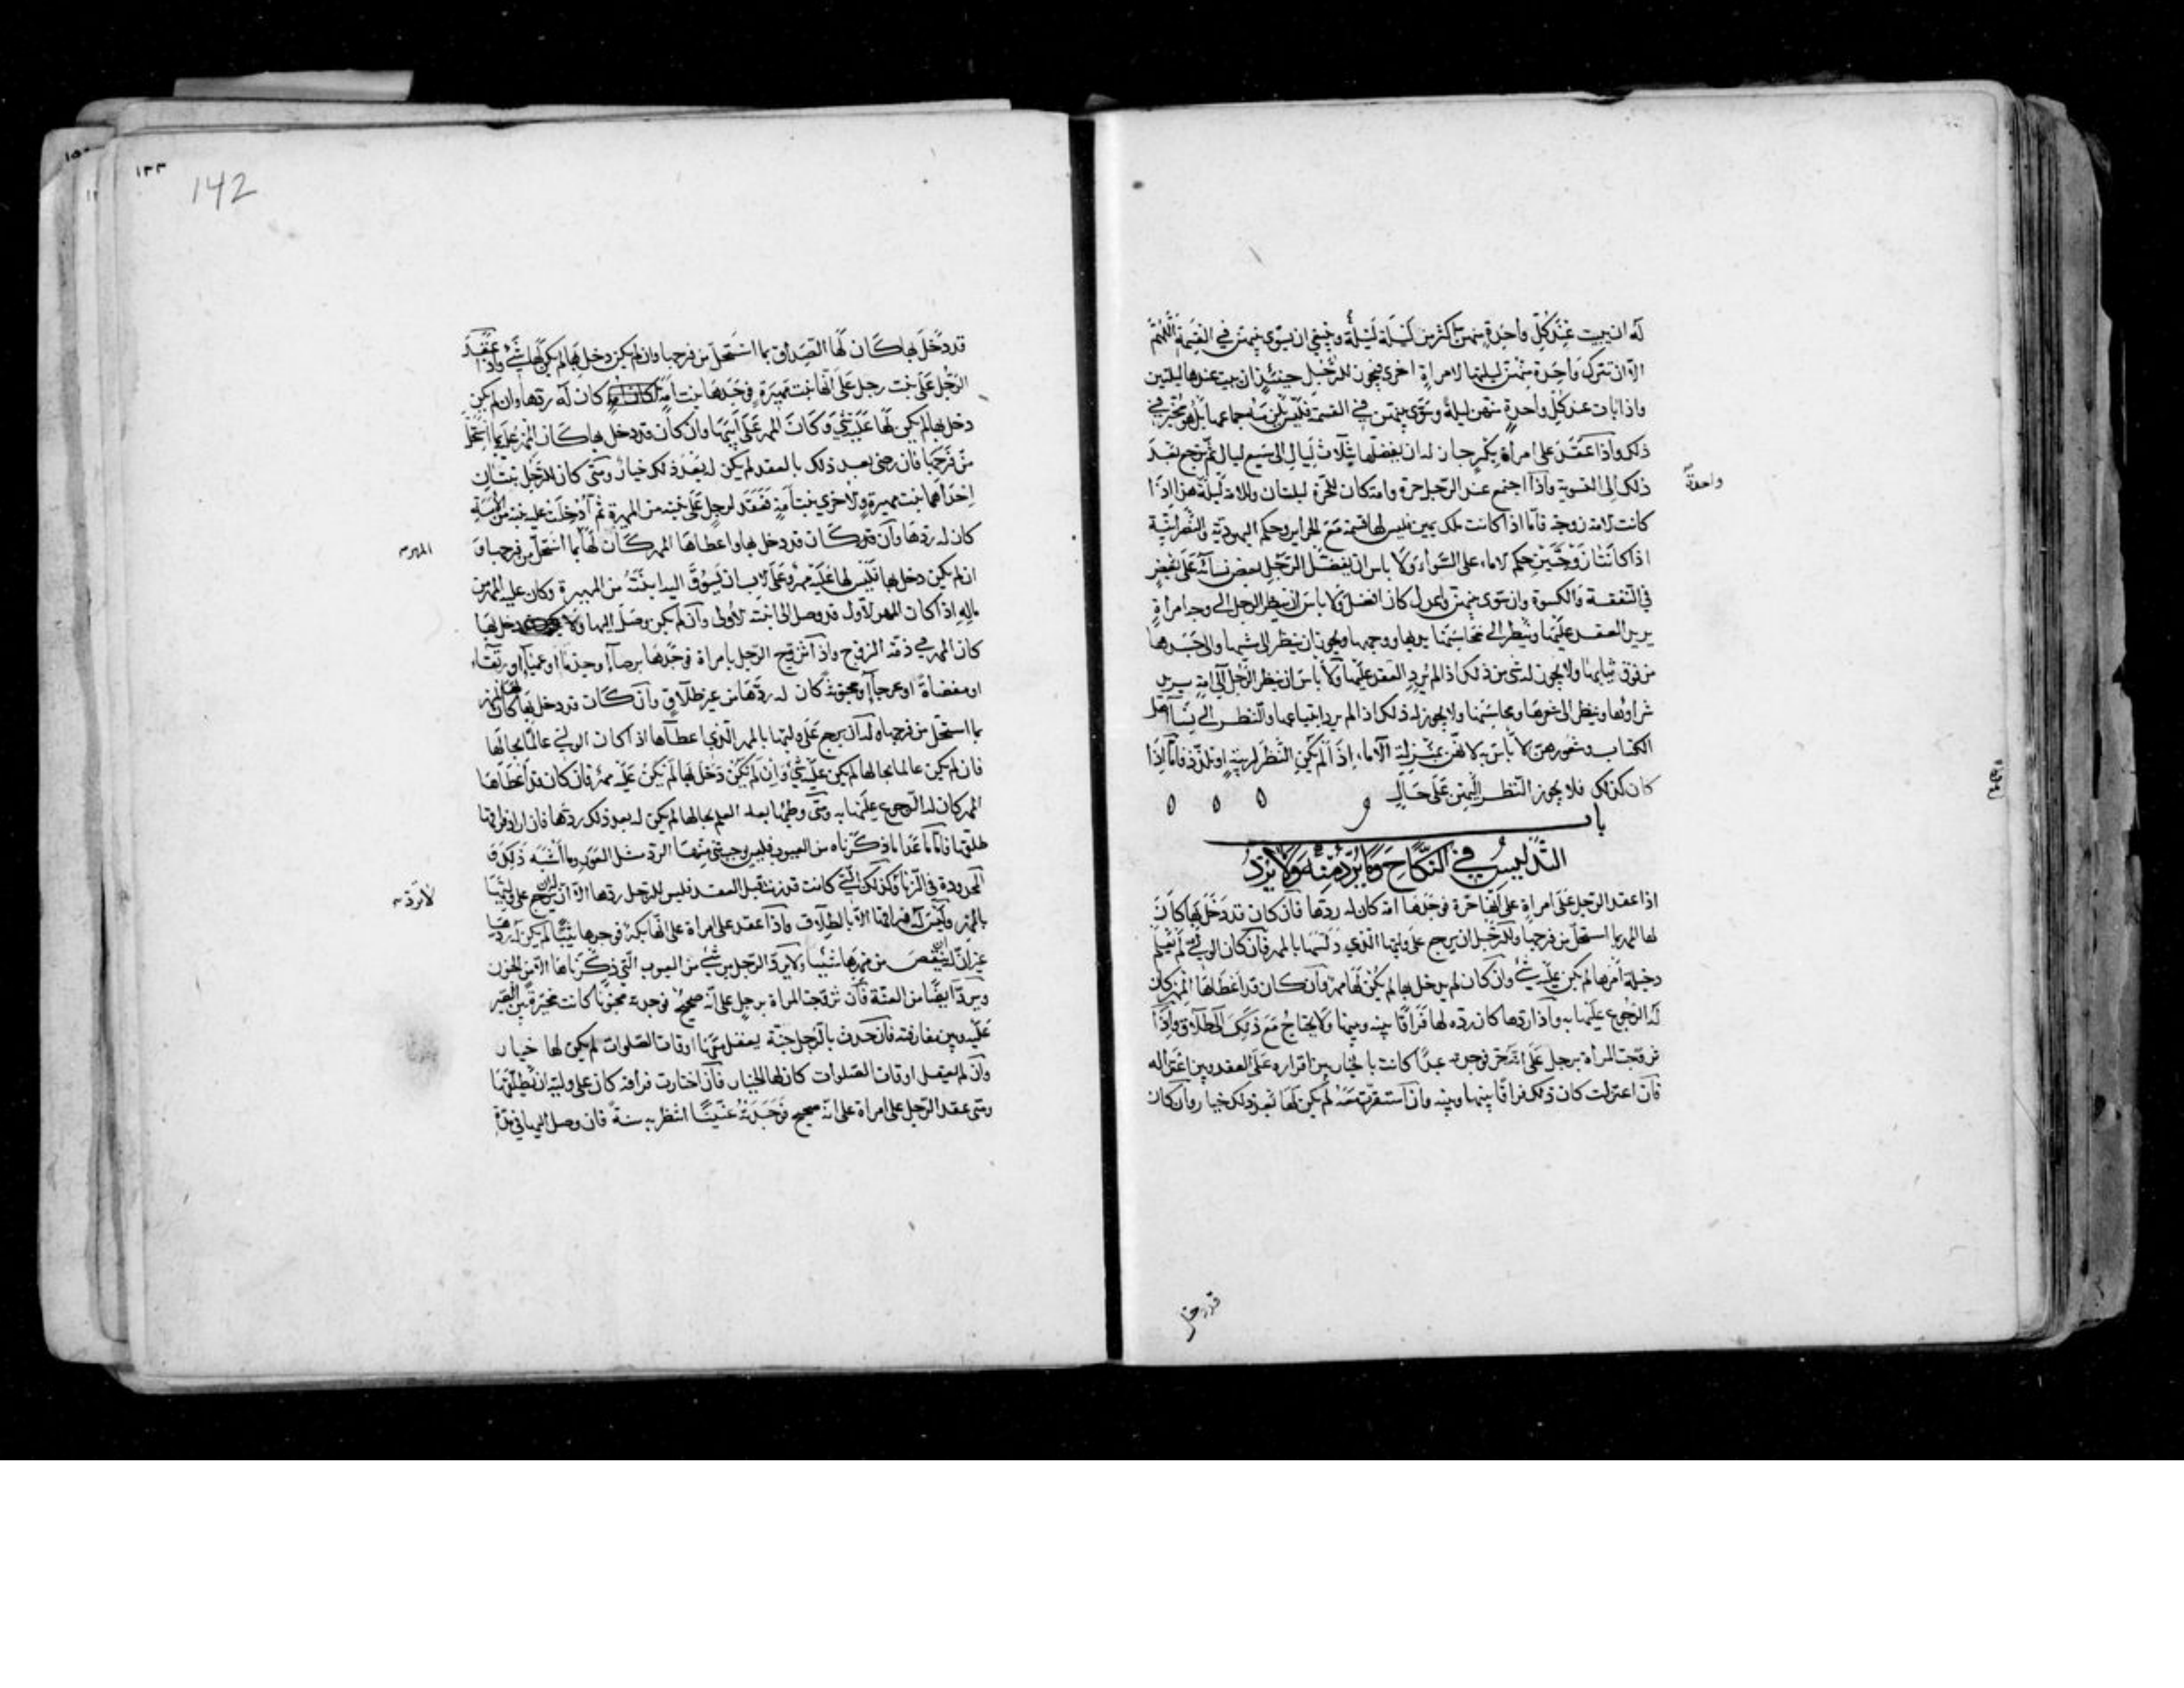 له ان يبيت عند كل واحدة منهن اكثر من ليلة ليلة وينبغي ان يسوى بينهن في القسمة اللهم
الا ان تترك واحدة منهن ليلتها لامراة اخرى فيجوز للرجل حينئذ ان يبيت عندها ليلتين
واذا بات عند كل واحدة منهن ليلة وسوى بينهن في القسمة فليس يلزمه جماعها بل هو مخير في
ذلك واذا عقد على امراة بكر جاز له ان يفضلها بثلاث ليال الى سبع ليال ثم يرجع بعد
ذلك الى التسوية واذا اجتمع عند الرجل حرة وامة كان للحرة ليلتان وللامة ليلة هذا اذا
واحدة
كانت الامة زوجة فاما اذا كانت ملك يمين فليس لها قسمة مع الحراير وحكم اليهودية والنصرانية
اذا كانتا زوجتين حكم الاماء على السواء ولا باس ان يفضل الرجل بعض نسائه على بعض
في النفقة والكسوة وان سوى بينهن وعدل كان افضل ولا باس ان ينظر الرجل الى وجه امراة
يريد العقد عليها وينظر الى محاسنها يديها ووجهها ويجوز ان ينظر الى مشيها والى جسدها
من فوق ثيابها ولا يجوز له شي من ذلك اذا لم يرد العقد عليها ولا باس ان ينظر الرجل الى امة يريد
شراءها وينظر الى شعرها ومحاسنها ولا يجوز له ذلك اذا لم يرد ابتياعها والنظر الى نساء اهل
الكتاب وشعورهن لا باس به لانهن بمنزلة الاماء اذا لم يكن النظر لريبة او تلذذ فاما اذا
كان كذلك فلا يجوز النظر اليهن على حال
باب
التدليس في النكاح وما يرد منه وما لا يرد
اذا عقد الرجل على امراة على انها حرة فوجدها امة كان له ردها فان كان قد دخل بها كان
لها المهر بما استحل من فرجها وللرجل ان يرجع على وليها الذي دلسها بالمهر فان كان الولي لم يعلم
دخيلة امرها لم يكن عليه شي وان كان لم يدخل بها لم يكن لها مهر وان كان قد اعطاها المهر كان
له الرجوع عليها به واذا ردها كان رده لها فراقا بينه وبينها ولا يحتاج مع ذلك الى طلاق واذا
تزوجت المراة برجل على انه حر فوجدته عبدا كانت بالخيار بين اقراره على العقد وبين اعتزاله
فان اعتزلت كان ذلك فراقا بينها وبينه وان استقرت معه لم يكن لها بعد ذلك خيار وان كان
قد دخل
١٣٣
142
قد دخل بها كان لها الصداق بما استحل من فرجها وان لم يكن دخل بها لم يكن لها شي واذا عقد
الرجل على بنت رجل على انها بنت مهيرة فوجدها بنت امة كان له ردها وان لم يكن
دخل بها لم يكن لها عليه شي وكان المهر على ابيها وان كان قد دخل بها كان المهر عليه بما استحل
من فرجها فان رضي بعد ذلك بالعقد لم يكن له بعد ذلك خيار ومتى كان للرجل بنتان
احداهما بنت مهيرة والاخرى بنت امة فعقد لرجل على بنته من المهيرة ثم ادخلت عليه بنته من الامة
كان له ردها وان كان قد دخل بها واعطاها المهر كان لها بما استحل من فرجها و
المهر
ان لم يكن دخل بها فليس لها عليه مهر وعلى الاب ان يسوق اليه ابنته من المهيرة وكان عليه المهر من
ماله اذا كان المهر الاول قد وصل الى ابنته الاولى وان لم يكن وصل اليها ولا دخل بها
كان المهر في ذمة الزوج واذا تزوج الرجل بامراة فوجدها برصاء او جذماء او عمياء او رتقاء
او مفضاة او عرجاء او مجنونة كان له ردها من غير طلاق وان كان قد دخل بها كان لها المهر
بما استحل من فرجها وله ان يرجع على وليها بالمهر الذي اعطاها اذا كان الولي عالما بحالها
فان لم يكن عالما بحالها لم يكن عليه شي وان لم يكن دخل بها لم يكن عليه مهر فان كان قد اعطاها
المهر كان له الرجوع عليها به ومتى وطيها بعد العلم بحالها لم يكن له بعد ذلك ردها فان اراد فراقها
طلقها فاما ما عدا ما ذكرناه من العيوب فليس يوجب شي منها الرد مثل العور وما اشبه ذلك و
المحدودة في الزنا وكذلك التي كانت قد زنت قبل العقد فليس للرجل ردها الا ان له ان يرجع على وليها
لا ترد
بالمهر وليس له فراقها الا بالطلاق واذا عقد على امراة على انها بكر فوجدها ثيبا لم يكن له ردها
غير ان له ان ينقص من مهرها شيئا ولا يرد الرجل من شي من العيوب التي ذكرناها الا من الجنون
ويرد ايضا من العنة فان تزوجت المراة برجل على انه صحيح فوجدته مجنونا كانت مخيرة بين الصبر
عليه وبين مفارقته فان حدث بالرجل جنة يعقل معها اوقات الصلوات لم يكن لها خيار
وان لم يعقل اوقات الصلوات كان لها الخيار فان اختارت فراقه كان على وليه ان يطلقها
ومتى عقد الرجل على امراة على انه صحيح فوجدته عنينا انتظر به سنة فان وصل اليها في مدة